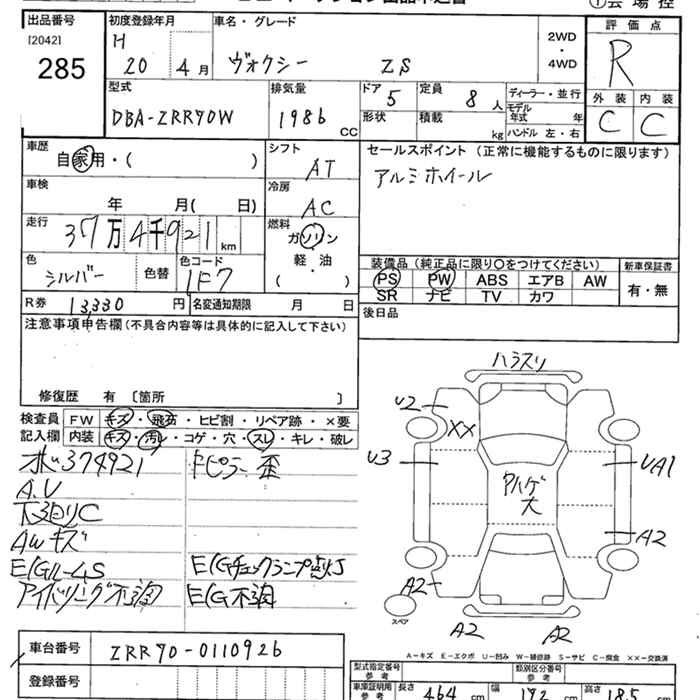 ①会場控
出品番号 初度登録年月 車名・グレード 評価点
[2042] H
285 20 4月 ヴォクシー ZS 2WD・4WD R
型式 排気量 ドア 定員 ディーラー・並行 外装 内装
DBA-ZRR70W 1986 CC 5 8人 モデル年式 年 C C
形状 積載 kg ハンドル 左・右
車歴 シフト セールスポイント(正常に機能するものに限ります)
自家用・( ) AT アルミホイール
車検 冷房
年 月( 日) AC
走行 燃料
37万4千921km ガソリン
色 色替 色コード 軽・油
シルバー 1F7 ( )
装備品(純正品に限り○をつけてください) 新車保証書
PS PW ABS エアB AW 有・無
SR ナビ TV カワ
R券 13,330円 名変通知期限 月 日 後日品
注意事項申告欄(不具合内容等は具体的に記入して下さい)
修復歴 有 [箇所 ]
検査員 FW キズ・飛石・ヒビ割・リペア跡・×要
記入欄 内装 キズ・汚れ・コゲ・穴・スレ・キレ・破レ
374921 ピラー歪
A.V
下回りC
AWキズ
E/Gル-4S E/Gチェックランプ点灯
アイドリング不調 E/G不調
ハラスリ
U2 XX
U3 UA1
アハゲ大
A2
A2
スペア
A2 A2
A-キズ E-エクボ U-凹み W-補修跡 S-サビ C-腐食 XX-交換済
車台番号 ZRR70-0110926
登録番号
型式指定番号 参考 類別区分番号 参考
車庫証明用 参考 長さ 464 cm 幅 172 cm 高さ 185 cm